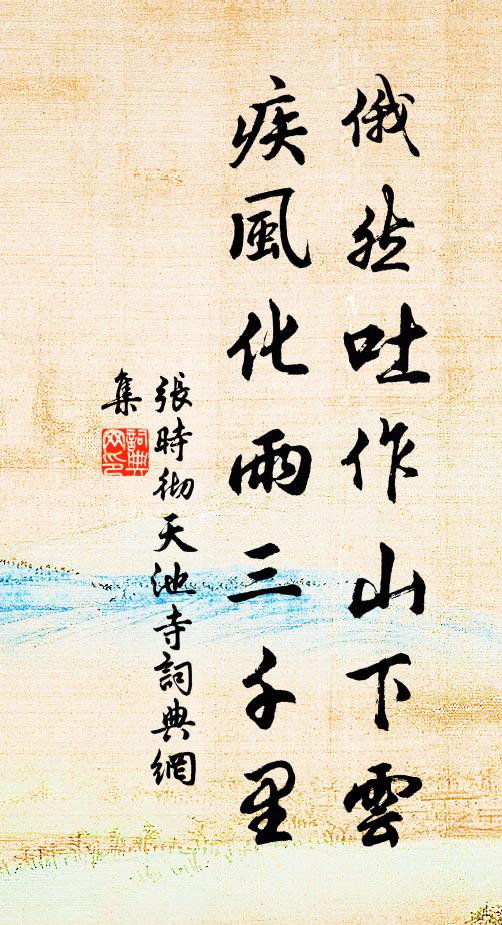 俄然吐作山下雲
疾風化雨三千里
張時彻天池寺詞典網
集
詞典網印